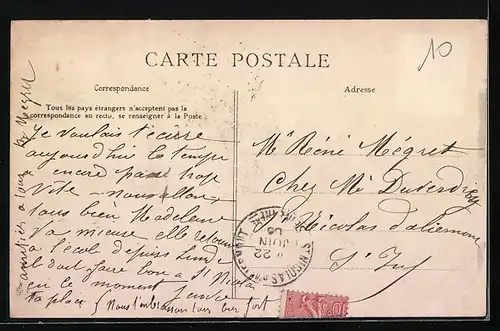 10
CARTE POSTALE
Correspondance
Adresse
Tous les pays étrangers n'acceptent pas la
correspondance au recto, se renseigner à la Poste
Je voulais t'écrire
aujourd'hui le temps
a encore passé trop
vite - nous allons
tous bien Madeleine
va mieux elle retourne
à l'école depuis Lundi
il doit faire bon à St Nicolas
en ce moment
ta place
nous t'embrassons tous bien fort
amitiés à tous
Mégret
Mr René Mégret
Chez Mr
St Nicolas d'aliermont
S. Inf
22
JUIN
06